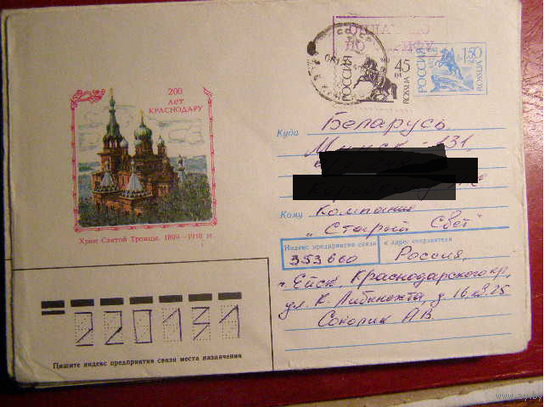 200
ЛЕТ
КРАСНОДАРУ
Храм Святой Троицы. 1899—1910 гг.
РОССИЯ
45
РОССИЯ
1.50
Куда
Беларусь
Минск - 131
Кому
Компания
"Старый Свет"
Индекс предприятия связи и адрес отправителя
353660
Россия,
г. Ейск, Краснодарского кр,
ул. К. Либкнехта, д. 16
Соколик А.В.
220131
Пишите индекс предприятия связи места назначения